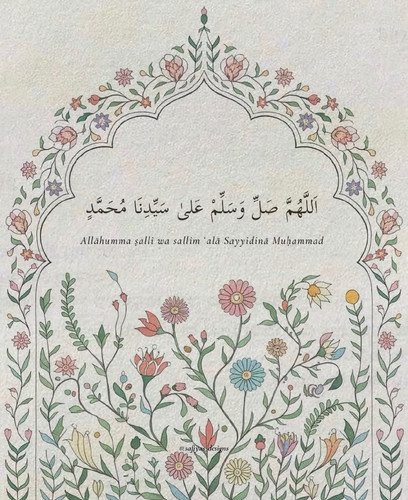 اَللَّهُمَّ صَلِّ وَسَلِّمْ عَلىٰ سَيِّدِنَا مُحَمَّدٍ
Allāhumma ṣalli wa sallim ʿalā Sayyidinā Muḥammad